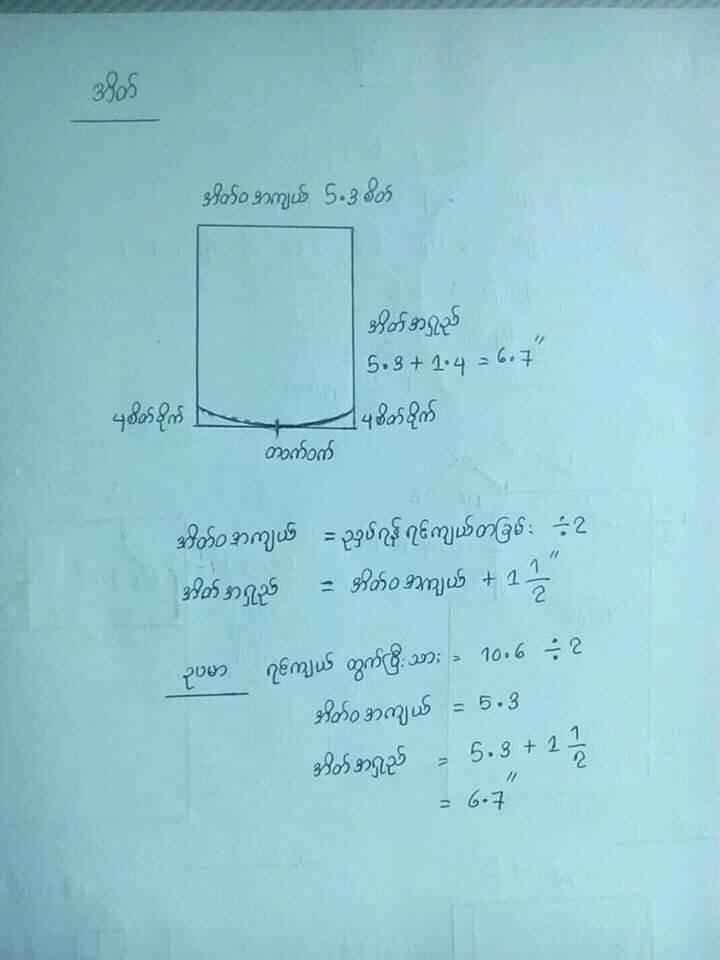 အိတ်
အိတ်ဝအကျယ် 5.3 စိတ်
အိတ်အရှည်
5.3 + 1.4 = 6.7"
၄စိတ်ခိုက် ၄စိတ်ခိုက်
တဝက်ဝက်
အိတ်ဝအကျယ် = ဥဒှပ်ရန် ရင်ကျယ်တခြမ်း ÷ 2
အိတ်အရှည် = အိတ်ဝအကျယ် + 1 1/2"
ဥပမာ ရင်ကျယ် ထွက်ပြီးသား = 10.6 ÷ 2
အိတ်ဝအကျယ် = 5.3
အိတ်အရှည် = 5.3 + 1 1/2
= 6.7"